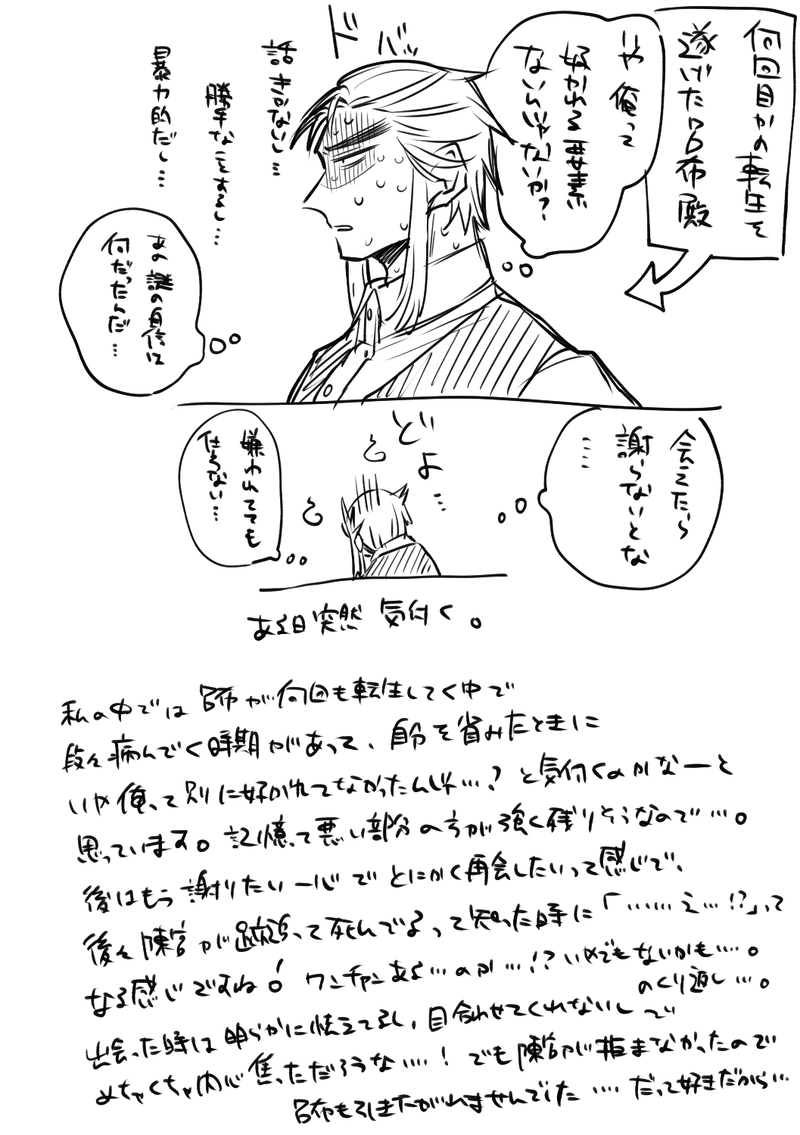 何回目かの転生を
遂げた呂布殿
いや 俺って
好かれる要素
ないんじゃないか?
ドバッ
話きかないし…
勝手なことするし…
暴力的だし…
あの謎の自信は
何だったんだ…
会えたら
謝らないとな
……
どよ…
嫌われてても
仕方ない…
ある日突然 気付く。
私の中では 呂布が何回も転生してく中で
段々病んでく時期があって、自分を省みたときに
いや俺って別に好かれてなかったんじゃ…? と気付くのかなーと
思っています。記憶って悪い部分の方が強く残りそうなので…。
後はもう謝りたい一心でとにかく再会したいって感じで、
後々陳宮が後追って死んでるって知った時に「……え…!?」って
なる感じですね! ワンチャンある…のか…!? いやでもないかも…。
のくり返し…。
出会った時は明らかに怯えてるし、目合わせてくれないしで
めちゃくちゃ内心焦っただろうな…! でも陳宮が拒まなかったので
呂布も引きさがれませんでした… だって好きだから…